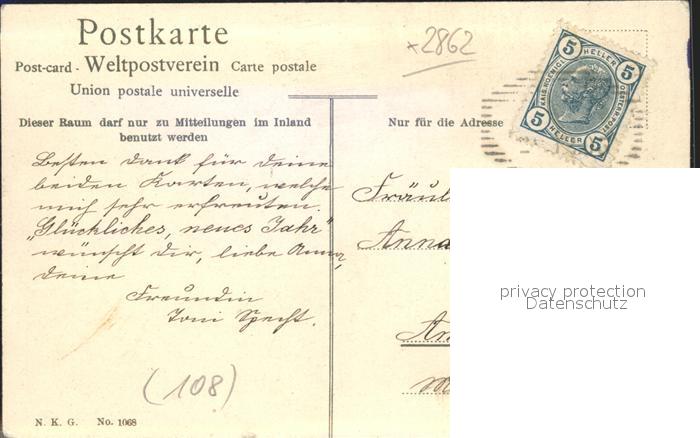 Postkarte
Post-card - Weltpostverein Carte postale
Union postale universelle
Dieser Raum darf nur zu Mitteilungen im Inland
benutzt werden
Besten Dank für deine
beiden Karten, welche
mich sehr erfreuten.
„Glückliches, neues Jahr"
wünscht Dir, liebe Anna,
deine
Freundin
Toni Specht.
(108)
N. K. G. No. 1068
×2862
5 HELLER 5
KAIS. KOENIGL. OESTERR. POST
5 HELLER 5
Nur für die Adresse
Fräul
Anna
privacy protection
Datenschutz